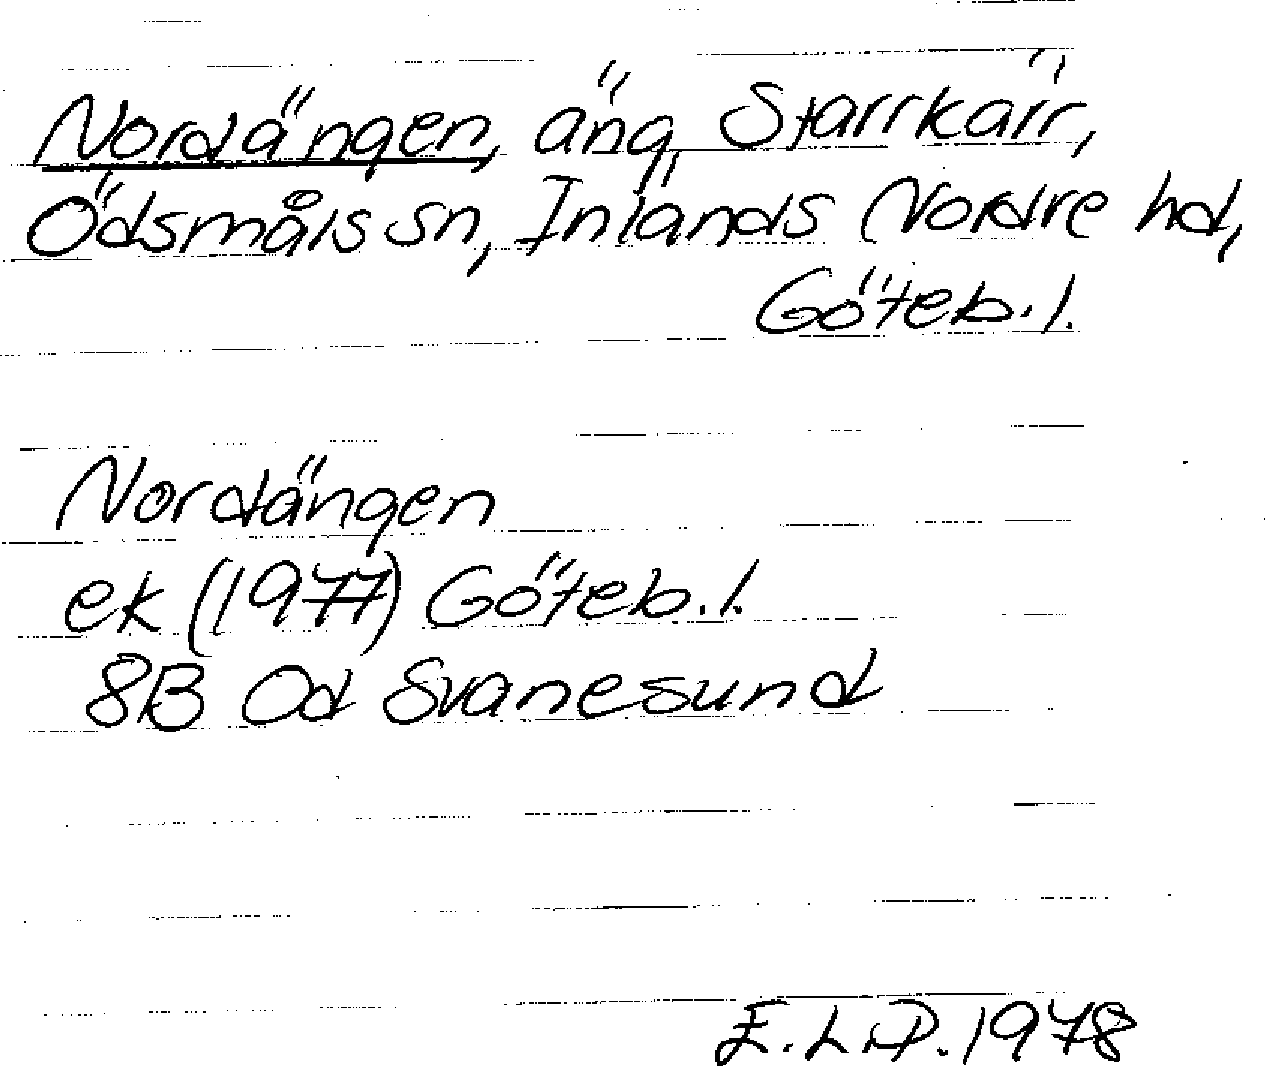 Nordängen, äng Starrkärr,
Ödsmåls sn, Inlands Nordre hd,
Göteb. l.
Nordängen
ek (1977) Göteb. l.
8B Od Svanesund
E.L.P. 1978